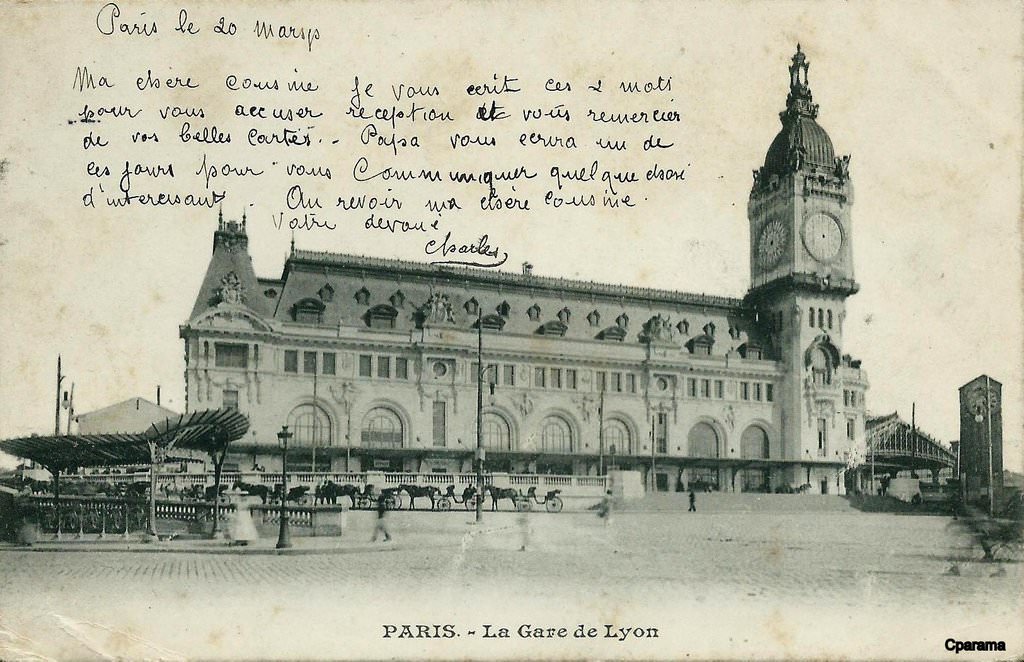 Paris le 20 mars
Ma chère cousine je vous ecrit ces 2 mots
pour vous accuser reception et vous remercier
de vos belles cartes. - Papa vous ecrira un de
ces jours pour vous communiquer quelque chose
d'interessant. Au revoir ma chère cousine.
Votre devoué
Charles
PARIS. - La Gare de Lyon
Cparama